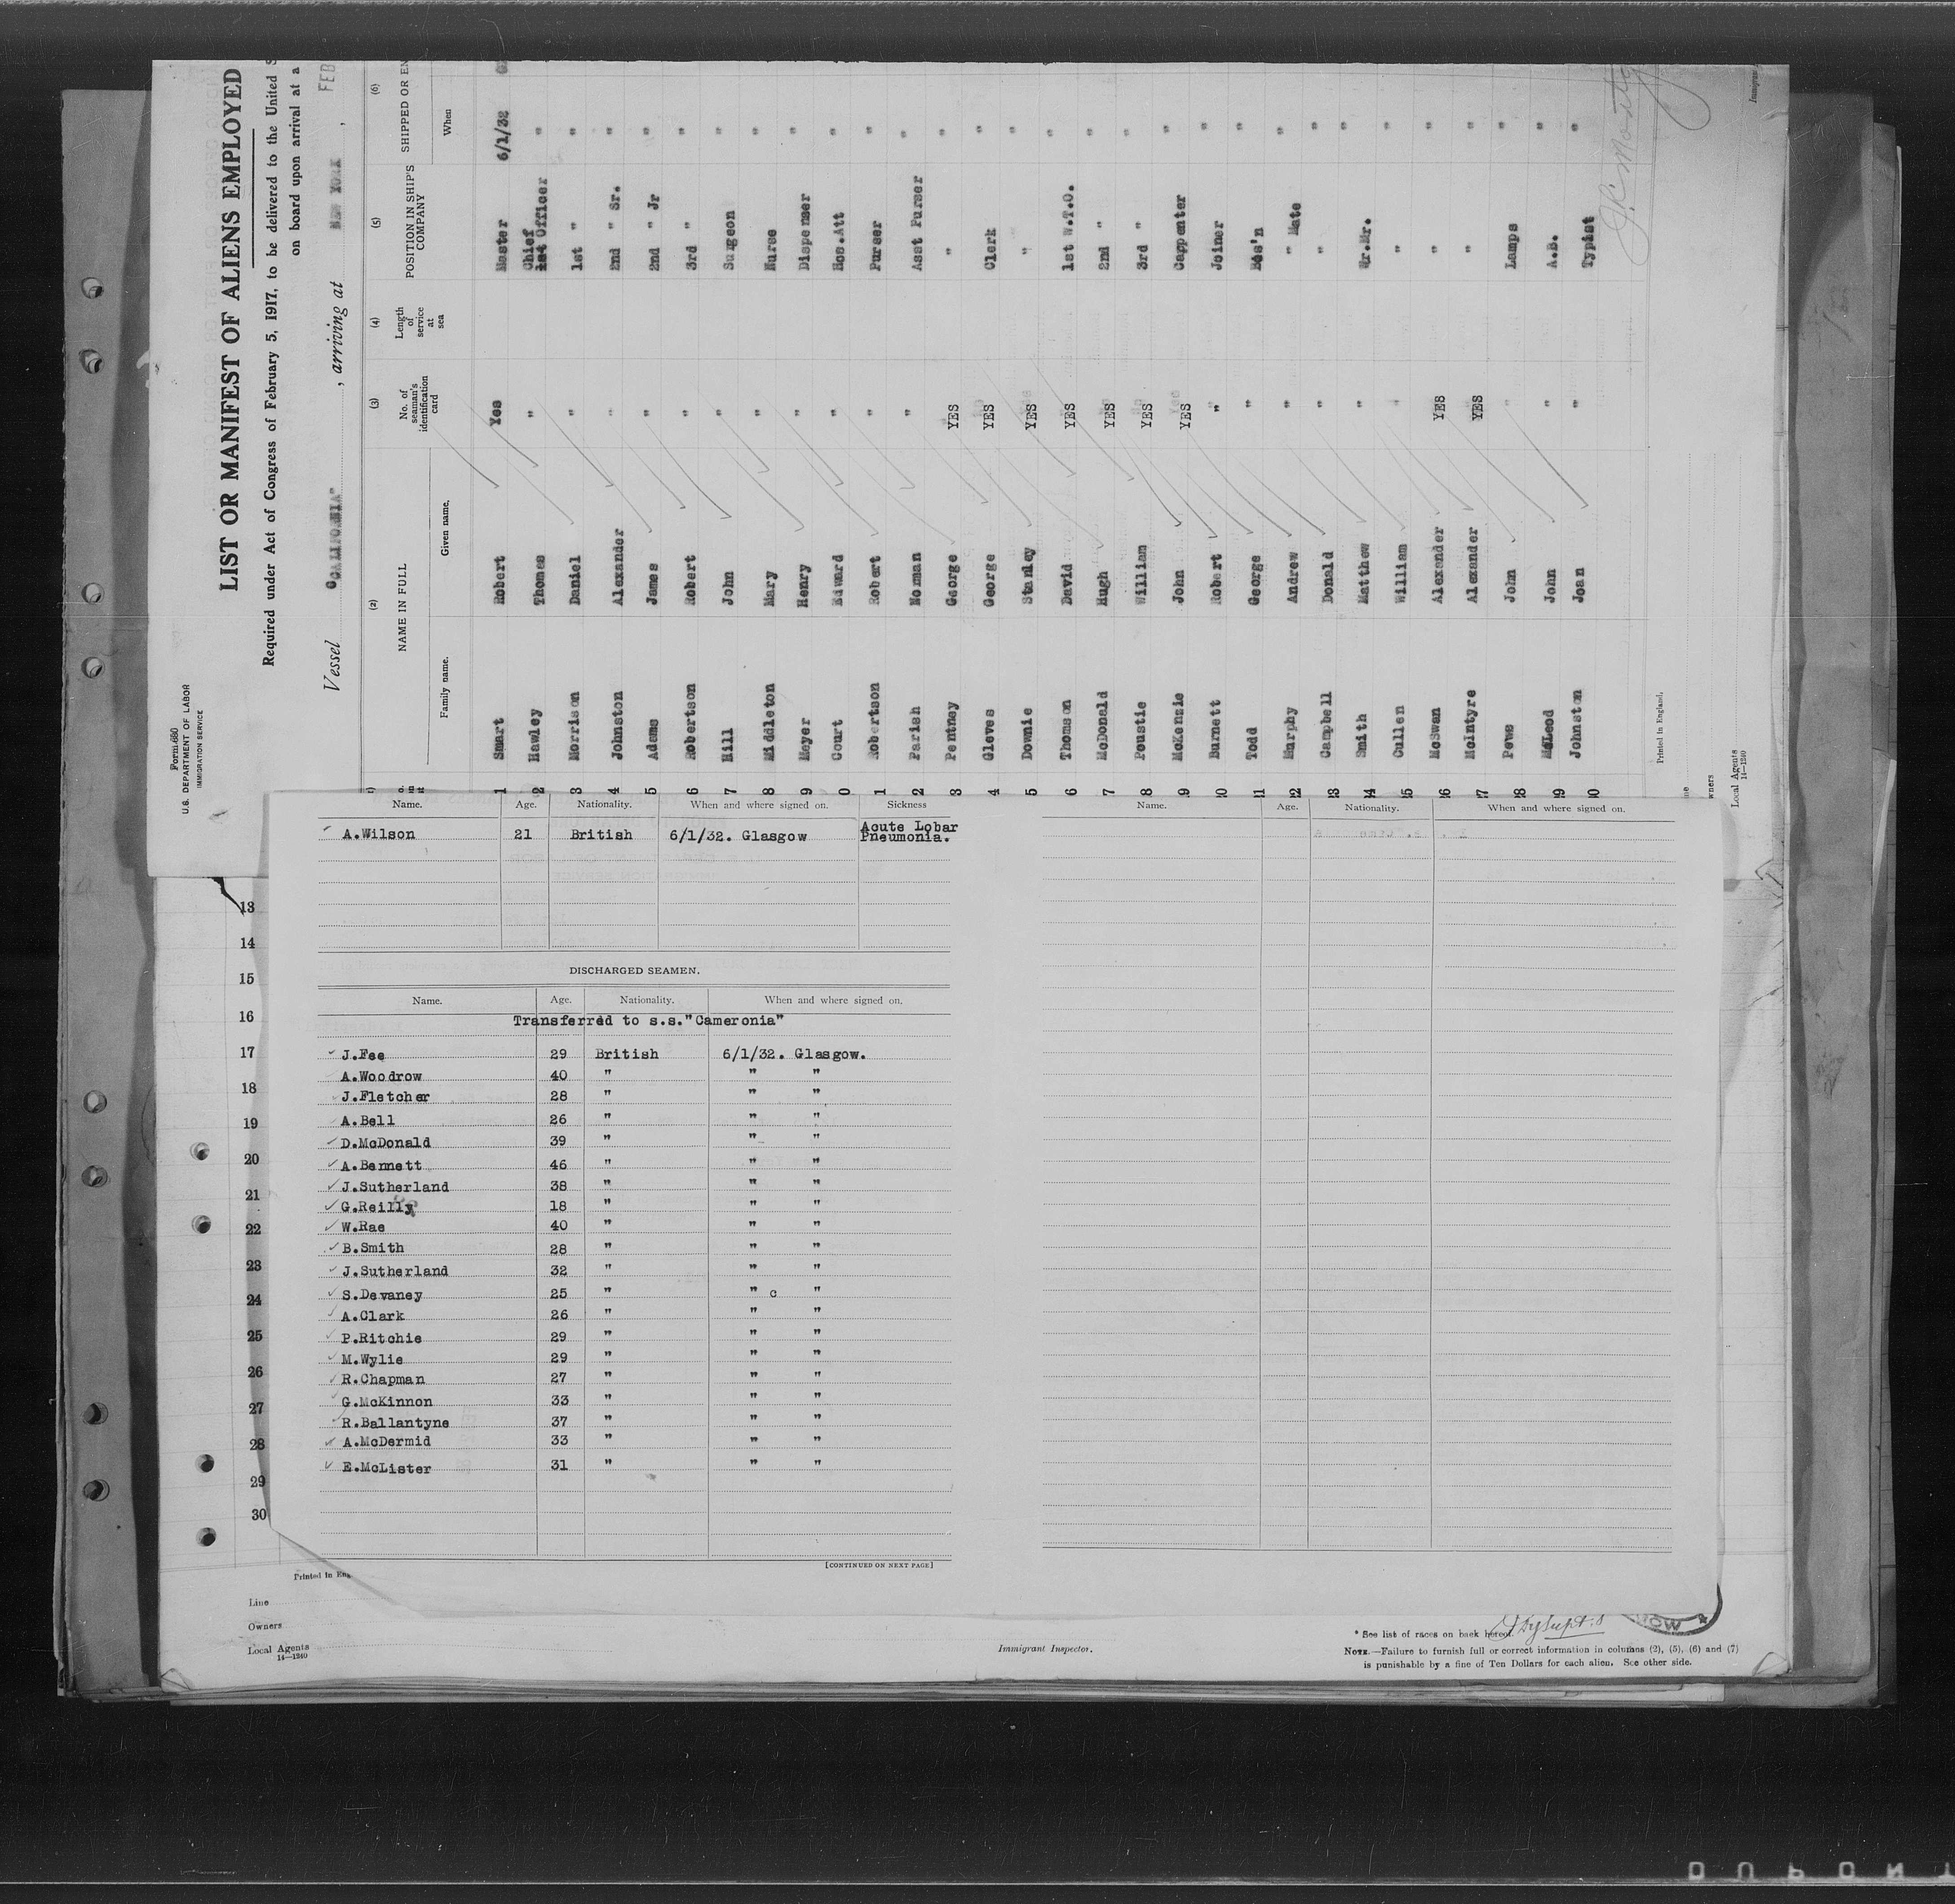 Form 680
U.S. DEPARTMENT OF LABOR
IMMIGRATION SERVICE
LIST OR MANIFEST OF ALIENS EMPLOYED
Required under Act of Congress of February 5, 1917, to be delivered to the United S
on board upon arrival at a
Vessel "CALIFORNIA" , arriving at NEW YORK , FEB
(2) (3) (4) (5) (6)
NAME IN FULL No. of seaman's identification card Length of service at sea POSITION IN SHIP'S COMPANY SHIPPED OR EN
Family name. Given name. When
1 Smart Robert Yes Master 6/1/32
2 Hawley Thomas " Chief 1st Officer "
3 Morrison Daniel " 1st " "
4 Johnston Alexander " 2nd " Sr. "
5 Adams James " 2nd " Jr "
6 Robertson Robert " 3rd " "
7 Hill John " Surgeon "
8 Middleton Mary " Nurse "
9 Meyer Henry " Dispenser "
0 Court Edward " Hos.Att "
1 Robertson Robert " Purser "
2 Parish Norman " Asst Purser "
3 Pentney George YES " "
4 Gleves George YES Clerk "
5 Downie Stanley YES " "
6 Thomson David YES 1st W.T.O. "
7 McDonald Hugh YES 2nd " "
8 Poustie William YES 3rd " "
19 McKenzie John YES Carpenter "
20 Burnett Robert " Joiner "
21 Todd George " Bos'n "
22 Murphy Andrew " " Mate "
23 Campbell Donald " " "
24 Smith Matthew " Qr.Mr. "
25 Cullen William " " "
26 McSwan Alexander YES " "
27 McIntyre Alexander YES " "
28 Pews John " Lamps "
29 McLeod John " A.B. "
30 Johnston Joan " Typist "
Printed in England.
Local Agents
14—1240
Name. Age. Nationality. When and where signed on. Sickness
A.Wilson 21 British 6/1/32. Glasgow Acute Lobar
Pneumonia.
DISCHARGED SEAMEN.
Name. Age. Nationality. When and where signed on.
Transferred to s.s."Cameronia"
J.Fee 29 British 6/1/32. Glasgow.
A.Woodrow 40 " " "
J.Fletcher 28 " " "
A.Bell 26 " " "
D.McDonald 39 " " "
A.Bennett 46 " " "
J.Sutherland 38 " " "
G.Reilly 18 " " "
W.Rae 40 " " "
B.Smith 28 " " "
J.Sutherland 32 " " "
S.Devaney 25 " " c "
A.Clark 26 " " "
P.Ritchie 29 " " "
M.Wylie 29 " " "
R.Chapman 27 " " "
G.McKinnon 33 " " "
R.Ballantyne 37 " " "
A.McDermid 33 " " "
E.McLister 31 " " "
[CONTINUED ON NEXT PAGE]
Name. Age. Nationality. When and where signed on.
13
14
15
16
17
18
19
20
21
22
23
24
25
26
27
28
29
30
Printed in Eng
Line
Owners
Local Agents
14—1240
Immigrant Inspector.
* See list of races on back hereof.
NOTE.—Failure to furnish full or correct information in columns (2), (5), (6) and (7)
is punishable by a fine of Ten Dollars for each alien. See other side.